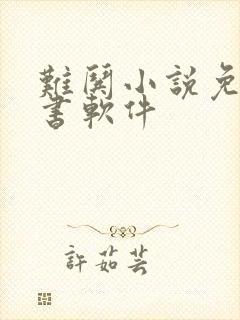 難鬨小說免
書軟件
許茹芸